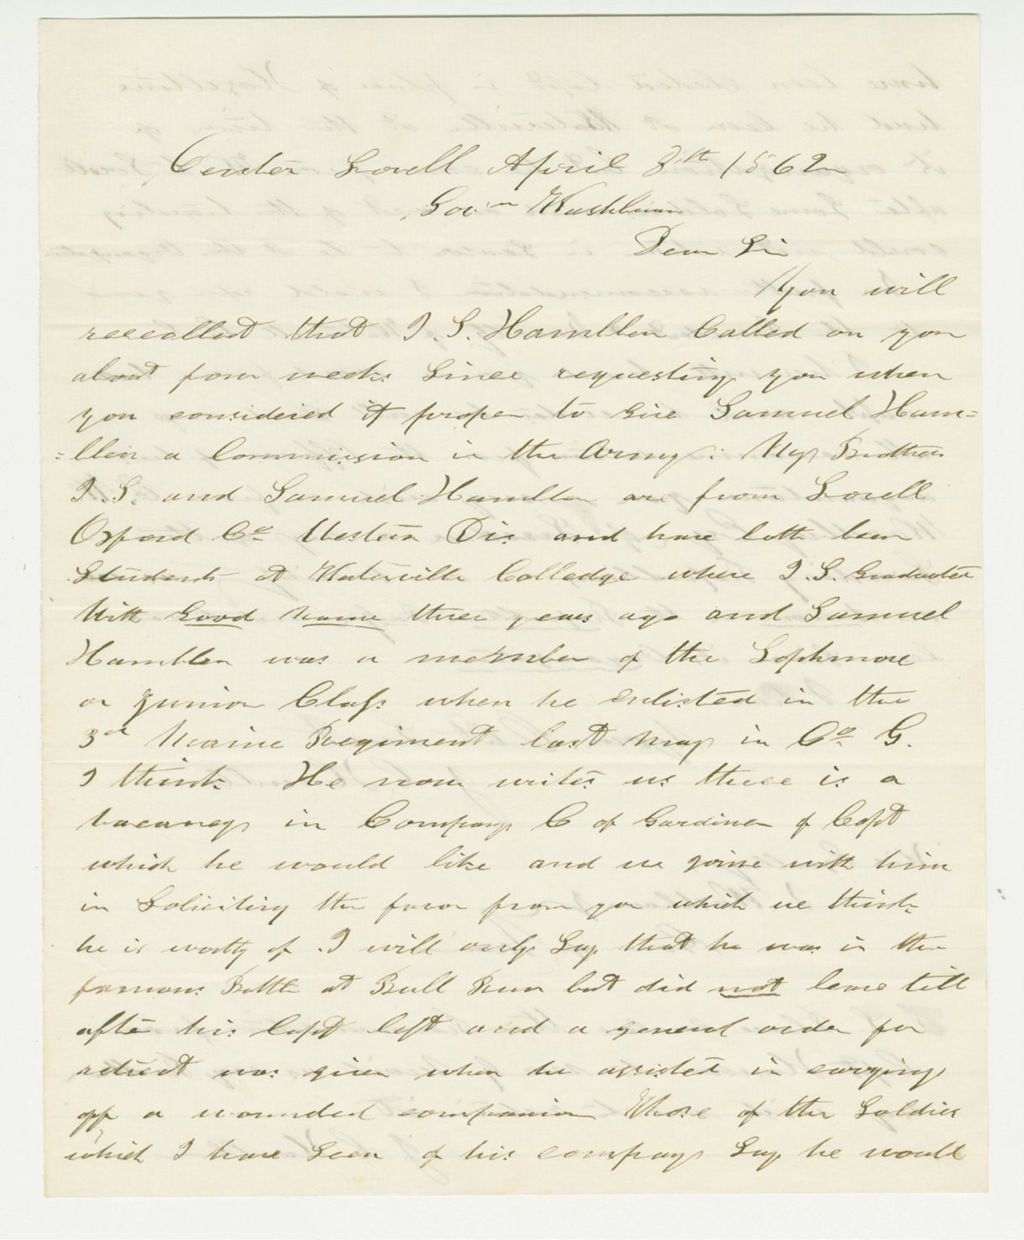 Center Lovell April 8th 1862
Govn Washburn
Dear Sir
You will
reccollect that I. S. Hamblen Called on you
about four weeks Since requesting you when
you considered it proper to Give Samuel Ham=
=blen a Commission in the Army. My Brothers
I. S. and Samuel Hamblen are from Lovell
Oxford Co. Western Dis. and have both been
Students at Waterville Colledge where I. S. Graduated
With Good name three years ago and Samuel
Hamblen was a member of the Sophmore
or Junior Class when he enlisted in the
3d Maine Regiment last May in Co. G.
I think He now writes us there is a
vacancy in Company C of Gardiner of Capt
which he would like and we joine with him
in Soliciting the favor from you which we think
he is worthy of. I will only Say that he was in the
famous Battle at Bull Run but did not leave till
after his Capt left and a general order for
retreat was given when he assisted in carrying
off a wounded companion Those of the Soldiers
which I have Seen of his company Say he would